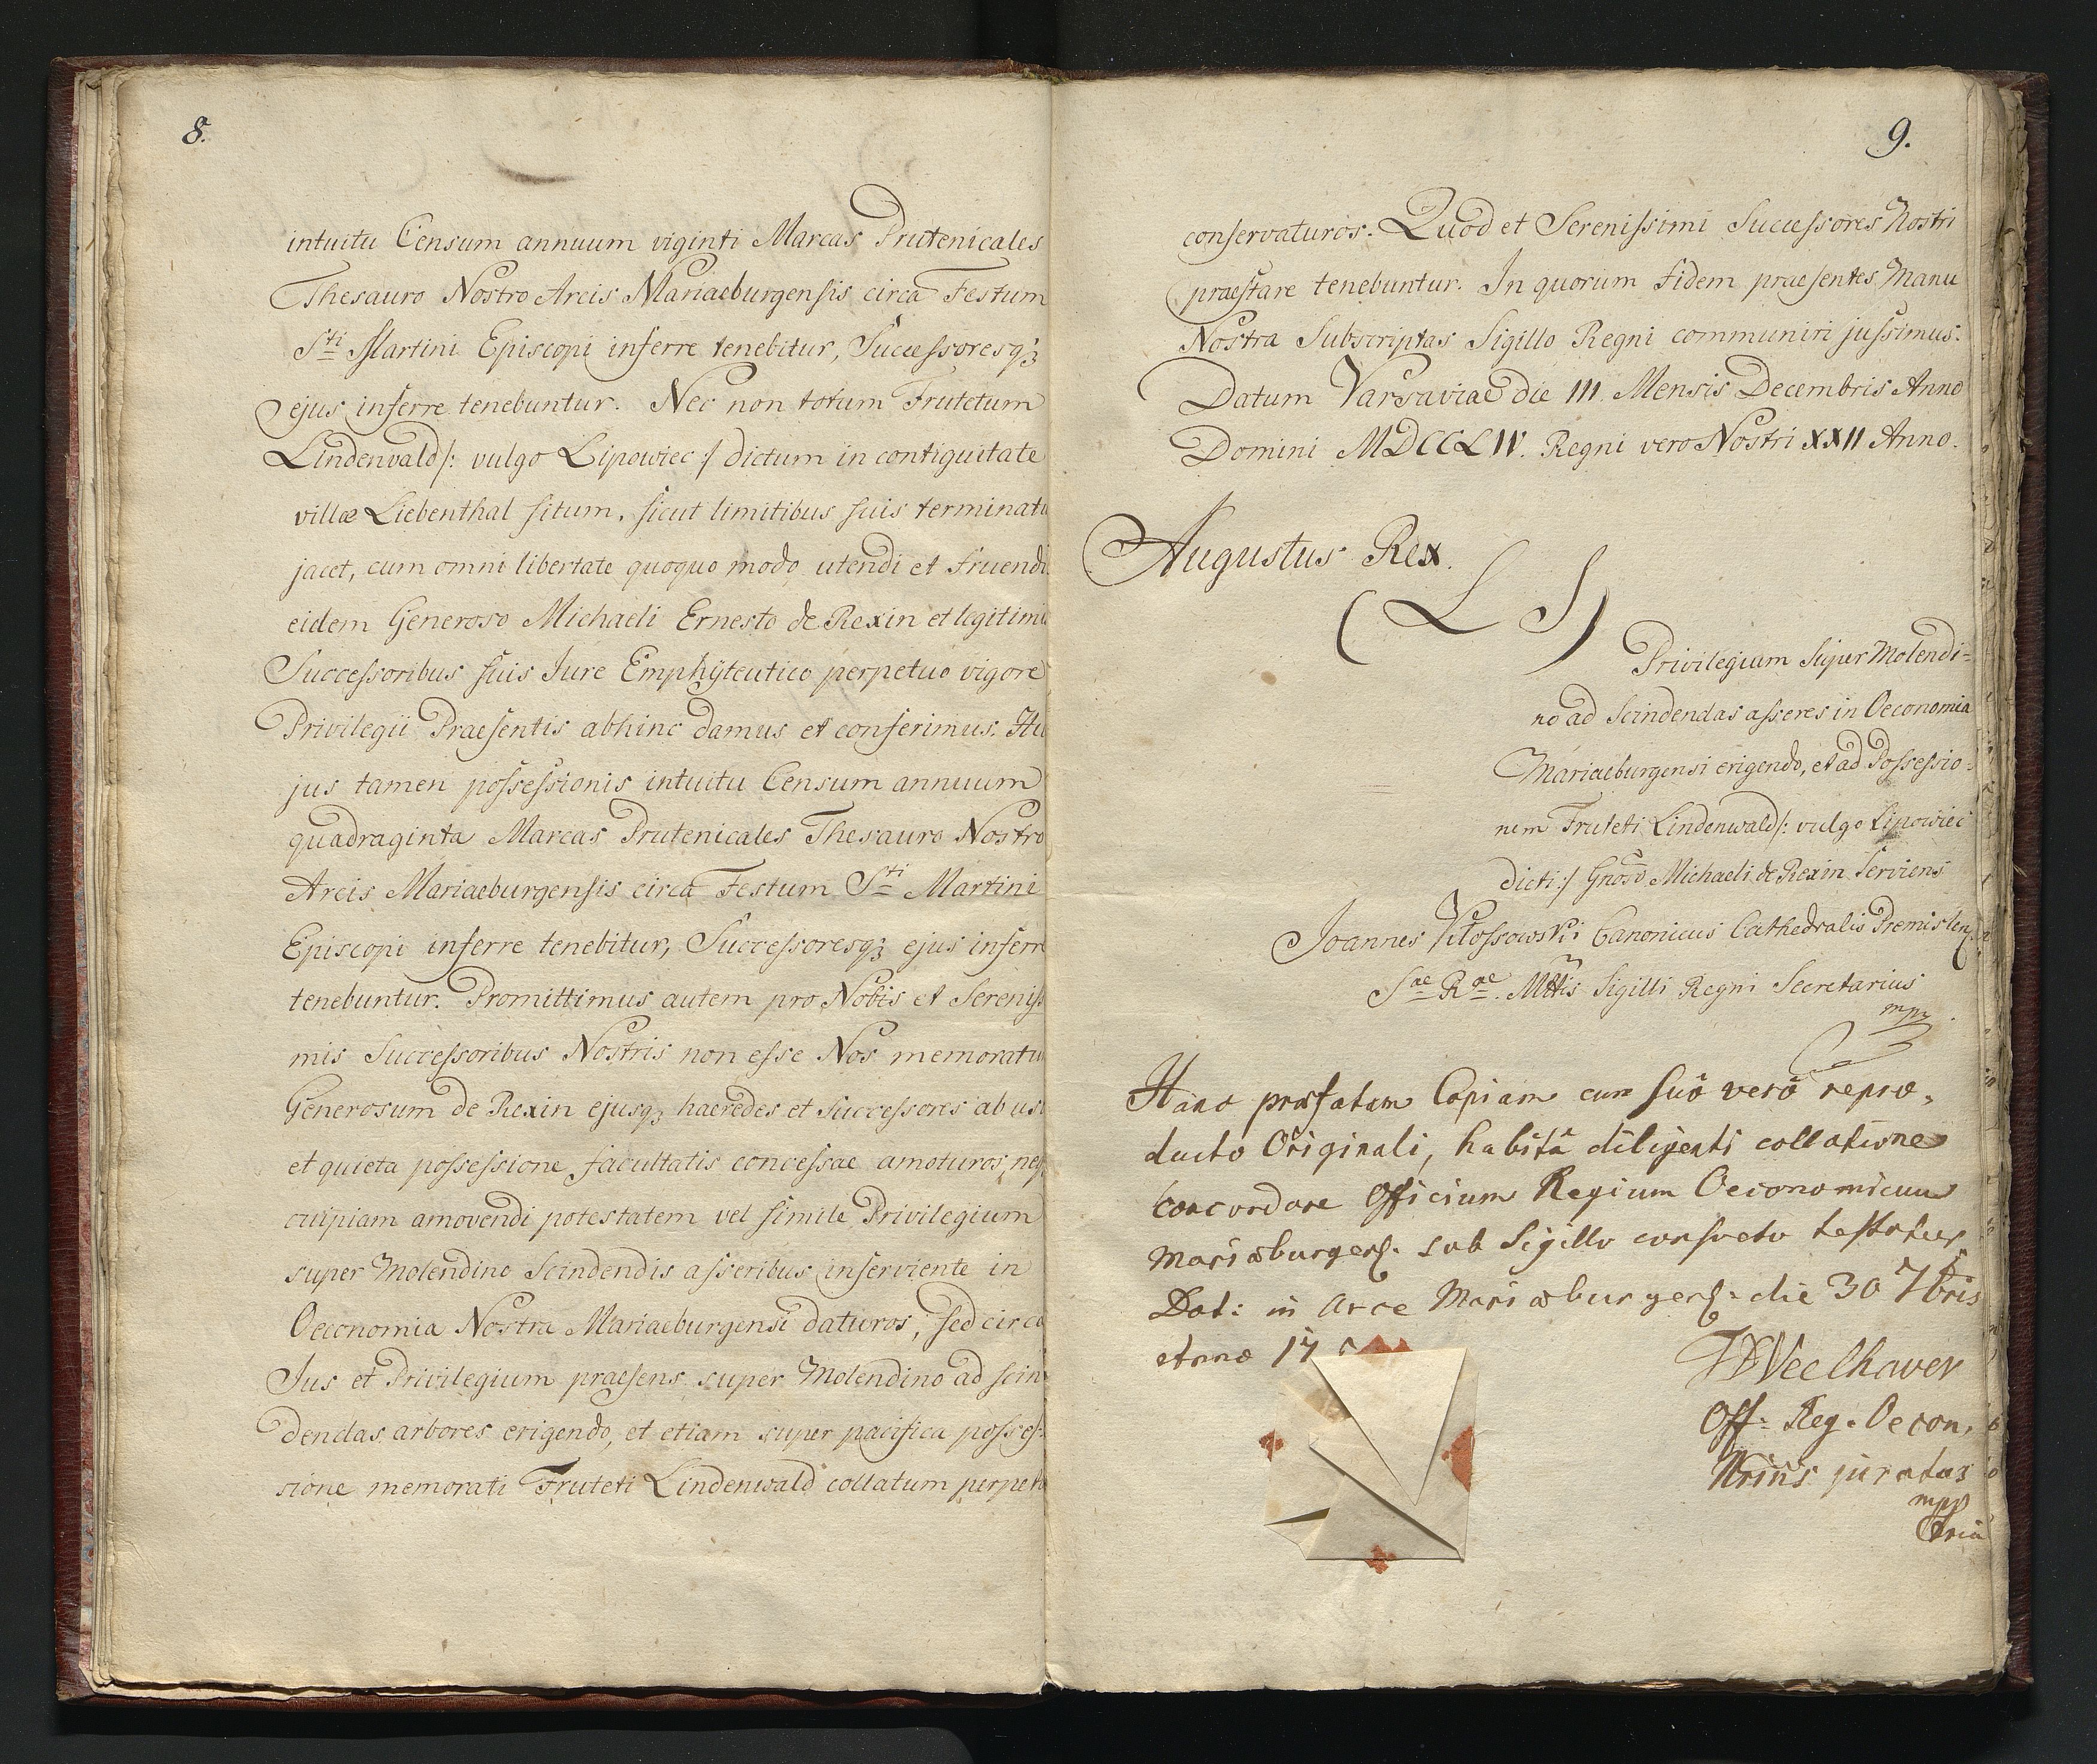 8.
intuitu Censum annuum viginti Marcas Prutenicales
Thesauro Nostro Arcis Mariaeburgensis circa Festum
Sti Martini Episcopi inferre tenebitur, Successoresq3
ejus inferre tenebuntur. Nec non totum Frutetum
Lindenvald/: vulgo Lipowiec :/ dictum in contiguitate
villæ Liebenthal situm, sicut limitibus suis terminatu
jacet, cum omni libertate quoquo modo utendi et fruendi
eidem Generoso Michaeli Ernesto de Rexin et legitimi
Successoribus suis Jure Emphÿteutico perpetuo vigore
Privilegii Praesentis abhinc damus et conferimus. Hu
jus tamen possessionis intuitu Censum annuum
quadraginta Marcas Prutenicales Thesauro Nostro
Arcis Mariaeburgensis circa Festum Sti Martini
Episcopi inferre tenebitur, Successoresq3 ejus inferr
tenebuntur. Promittimus autem pro Nobis et Sereniss
mis Successoribus Nostris non esse Nos memoratu
Generosum de Rexin ejusq3 haeredes et Successores ab us
et quieta possessione facultatis concessae amoturos, neq
cuipiam amovendi potestatem vel simile Privilegium
super Molendino Scindendis asseribus inserviente in
Oeconomia Nostra Mariaeburgensi daturos, sed circa
Jus et Privilegium praesens super Molendino ad scin
dendas arbores erigendo, et etiam super pacifica posses=
sione memorati Fruteti Lindenwald collatum perpetu
9.
conservaturos. Quod et Serenissimi Successores Nostri
praestare tenebuntur. In quorum fidem praesentes Manu
Nostra Subscriptas Sigillo Regni communiri jussimus.
Datum Varsaviae die III. Mensis Decembris Anno
Domini MDCCLIV. Regni vero Nostri XXII Anno.
Augustus Rex.
(L S)
Privilegium Super Molendi=
no ad Scindendas asseres in Oeconomia
Mariaeburgensi erigendo, et ad Possessio=
nem Fruteti Lindenwald/: vulgo Lipowiec
dicti :/ Gnoso Michaeli de Rexin Serviens
Joannes Kłossowski Canonicus Cathedralis Premislen
Sae Rae Mttis Sigilli Regni Secretarius
mpr
Hanc præfatam Copiam cum suo vero repro,
ducto Originali, habitâ diligenti collatione
concordare Officium Regium Oeconomicum
Mariæburgens. sub Sigillo consueto testatur
Dat: in Arce Mariæburgens: die 30 7bris
Anno 17
Off: Reg. Oecon,
juratus
mpp